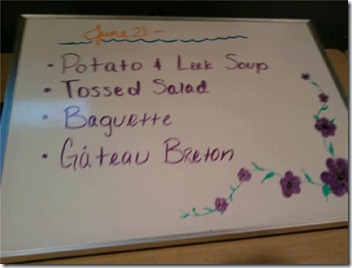 June 21 -
• Potato & Leek Soup
• Tossed Salad
• Baguette
• Gáteau Breton